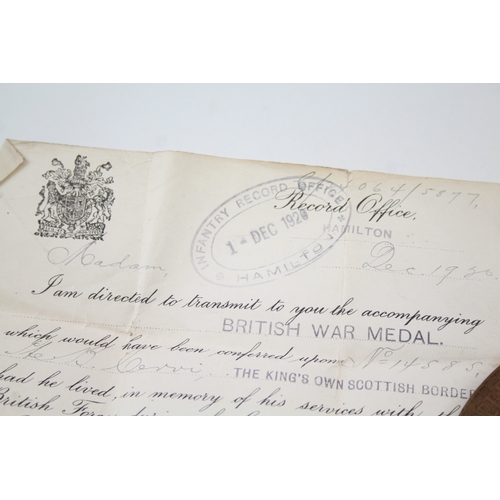 Record Office,
HAMILTON
INFANTRY RECORD OFFICE
1 DEC 1920
HAMILTON
Dec. 1920
Madam,
I am directed to transmit to you the accompanying
BRITISH WAR MEDAL.
which would have been conferred upon No 14585,
THE KING'S OWN SCOTTISH BORDE
had he lived, in memory of his services with th
British Force